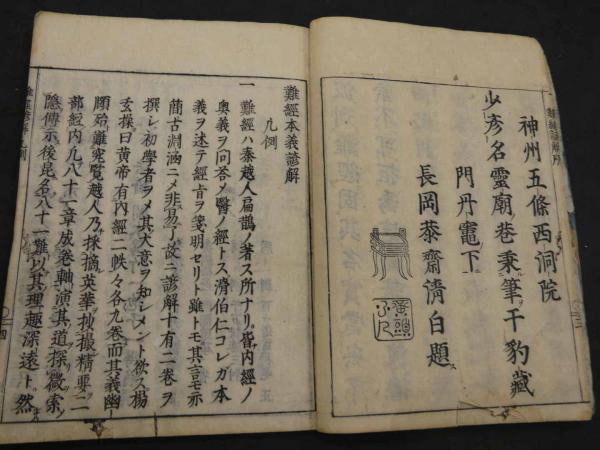 神州五條西洞院
少彦名靈廟巷秉筆于豹藏
門丹竈下
長岡恭齋清白題ス
難經本義諺解
凡例
一 難經ハ秦越人扁鵲ノ著ス所ナリ皆內經ノ
奧義ヲ問荅メ醫ノ經トス滑伯仁コレガ本
義ヲ述テ經旨ヲ箋明セリト雖トモ其言モ亦
簡古淵涵ニメ非易了故ニ諺解十有二卷ヲ
撰レ初學者ヲメ其大意ヲ知シメント欲ス楊
玄操曰黃帝有內經二帙々各九卷而其義幽
賾殆難究覽越人乃採摘英華抄撮精要二
部經內凢八十一章成卷軸演其道探微索
隱傳示後昆名八十一難以其理趣深遠ト然